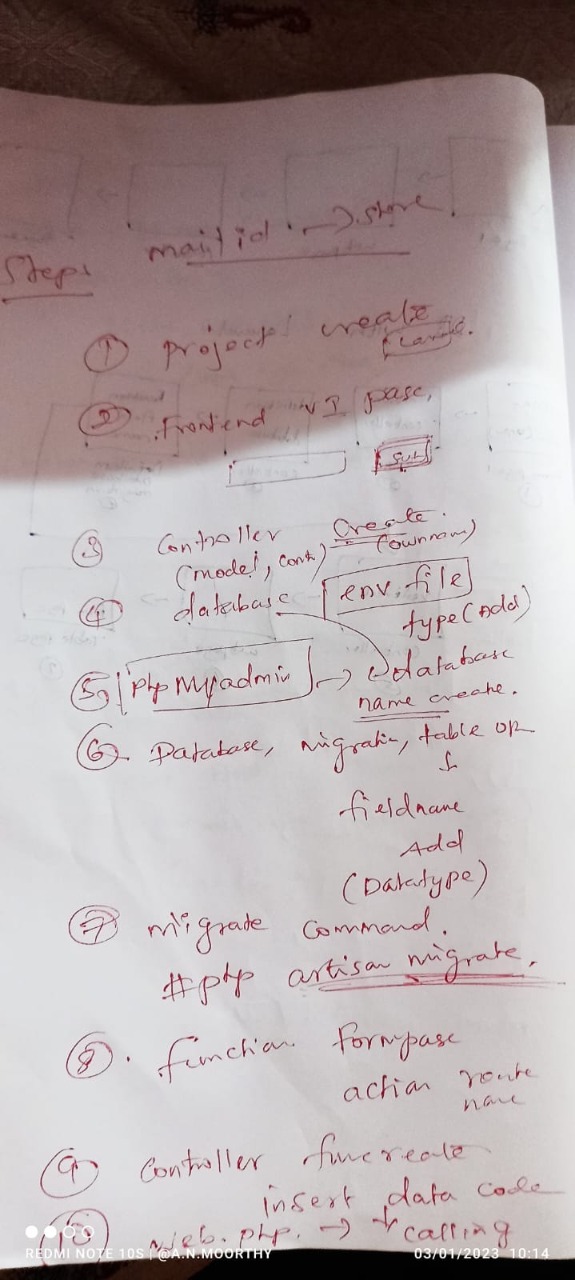 Steps mail id → store
① project create
② Frontend UI page,
③ Controller Create.
(model, cont) (own nam)
④ database env. file
type (Add)
⑤ php Myadmin → database
name create.
⑥ Database, migratin, table or
fieldname
Add
(Datatype)
⑦ migrate command.
#php artisan migrate.
⑧. function formpage
action route
name
⑨ Controller fun create
insert data code
web.php. → calling
REDMI NOTE 10S | @A.N.MOORTHY 03/01/2023 10:14